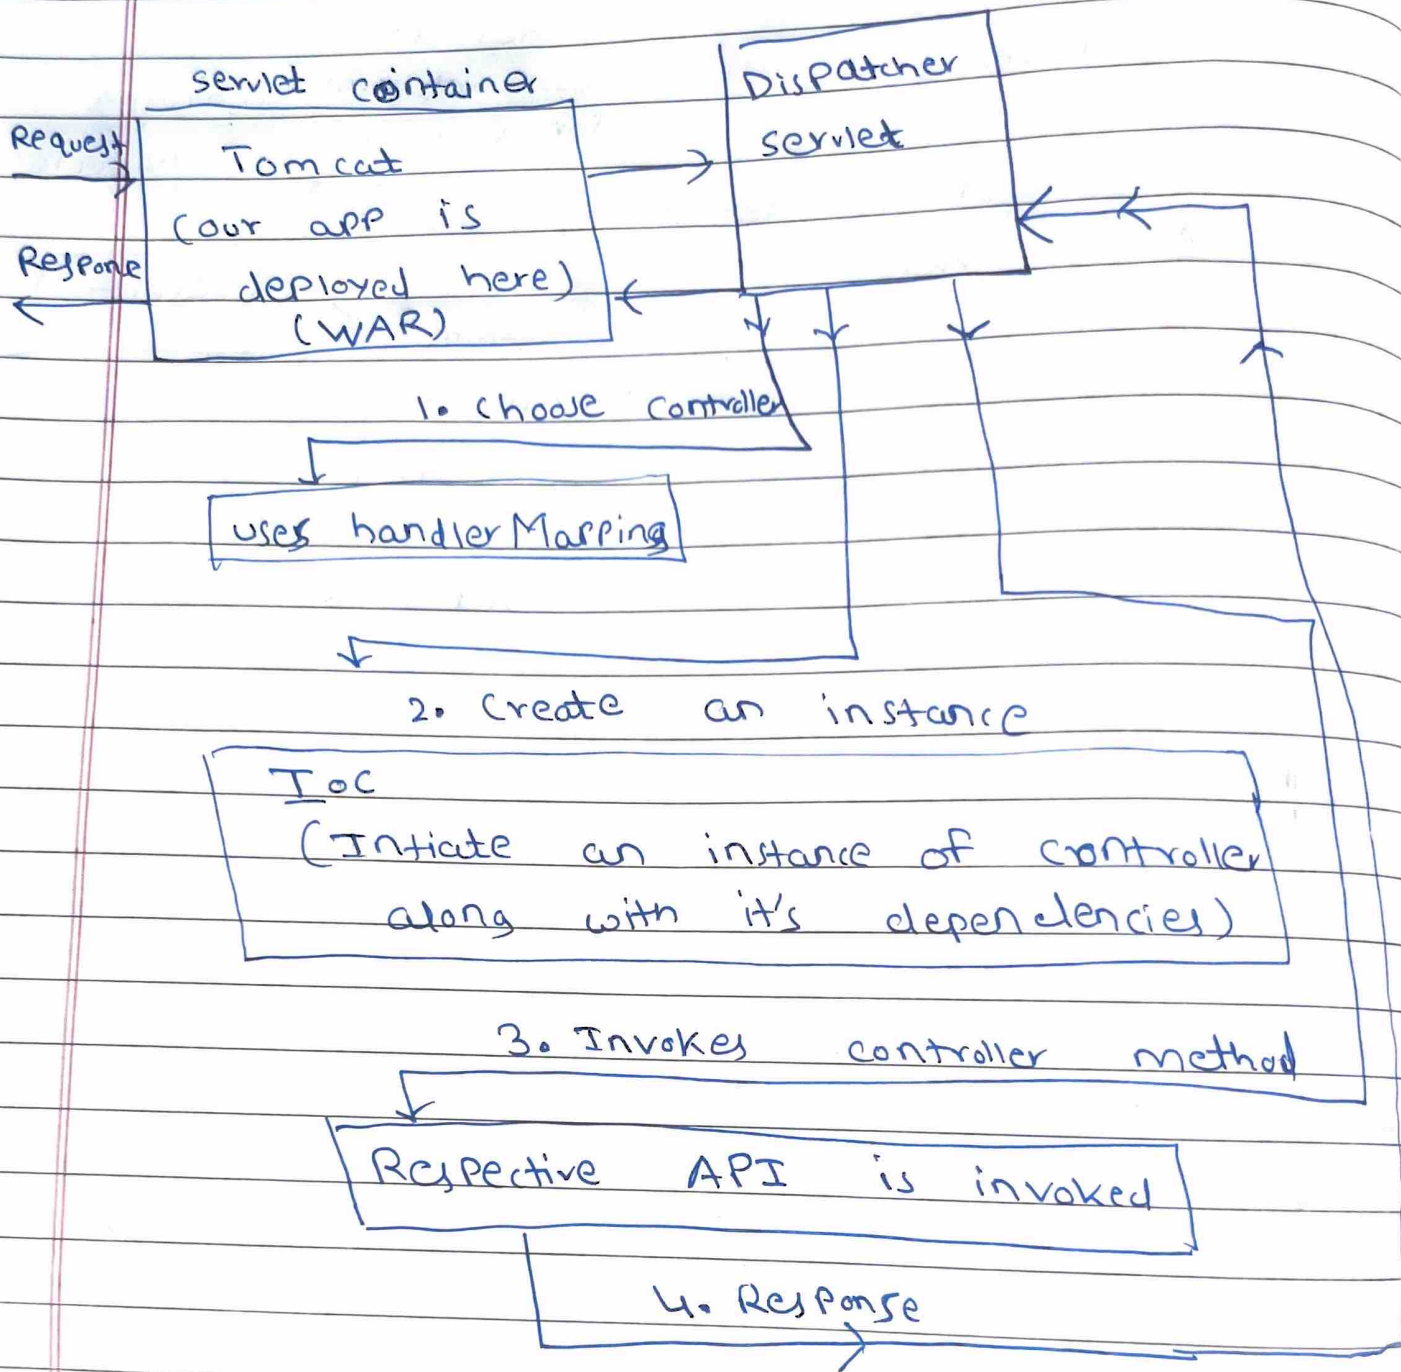 servlet container
Dispatcher
servlet
Request
Tomcat
(our app is
deployed here)
(WAR)
Respone
1. choose controller
uses handlerMapping
2. Create an instance
IoC
(Intiate an instance of controller
along with it's dependencies)
3. Invokes controller method
Respective API is invoked
4. Response